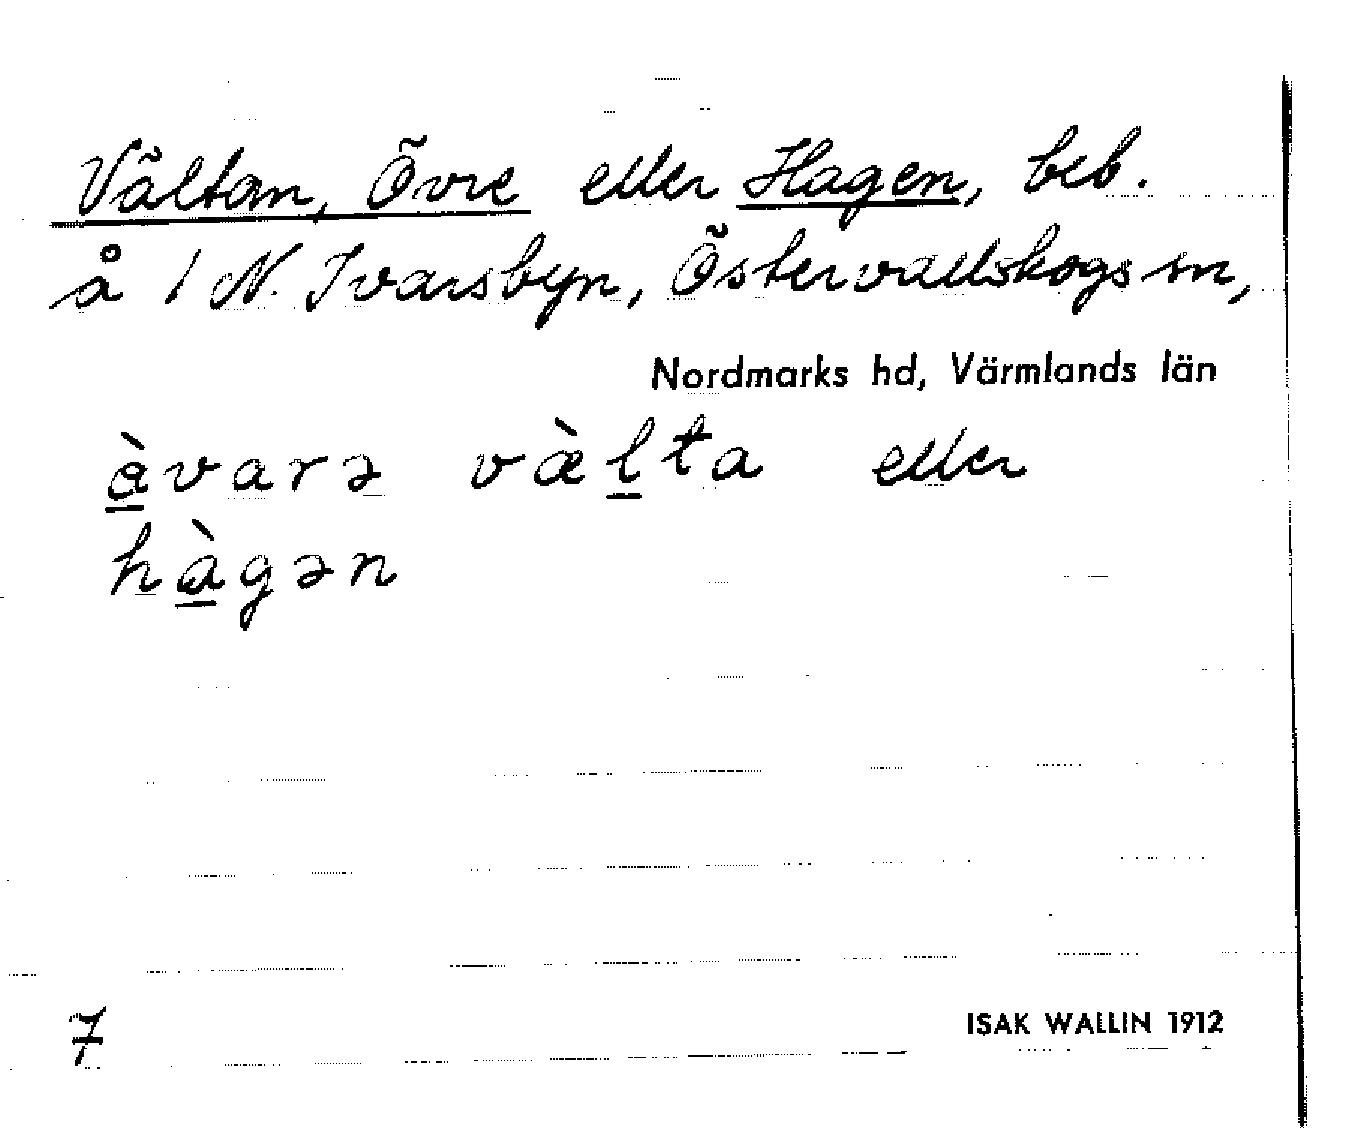 Vältan, Övre eller Hagen, beb.
å 1 N. Ivarsbyn, Östervallskogs sn,
Nordmarks hd, Värmlands län
à̠varə væ̀l̠ta eller
hà̠gən
7
ISAK WALLIN 1912